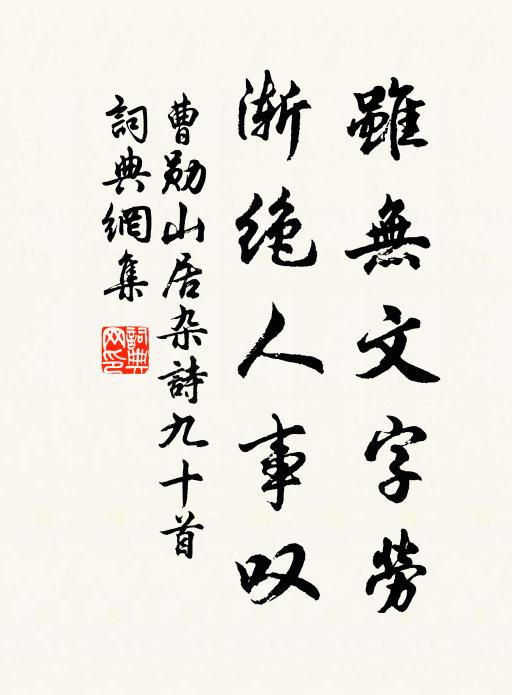 雖無文字勞
漸絶人事叹
曹勛山居杂詩九十首
詞典網集
詞典网印